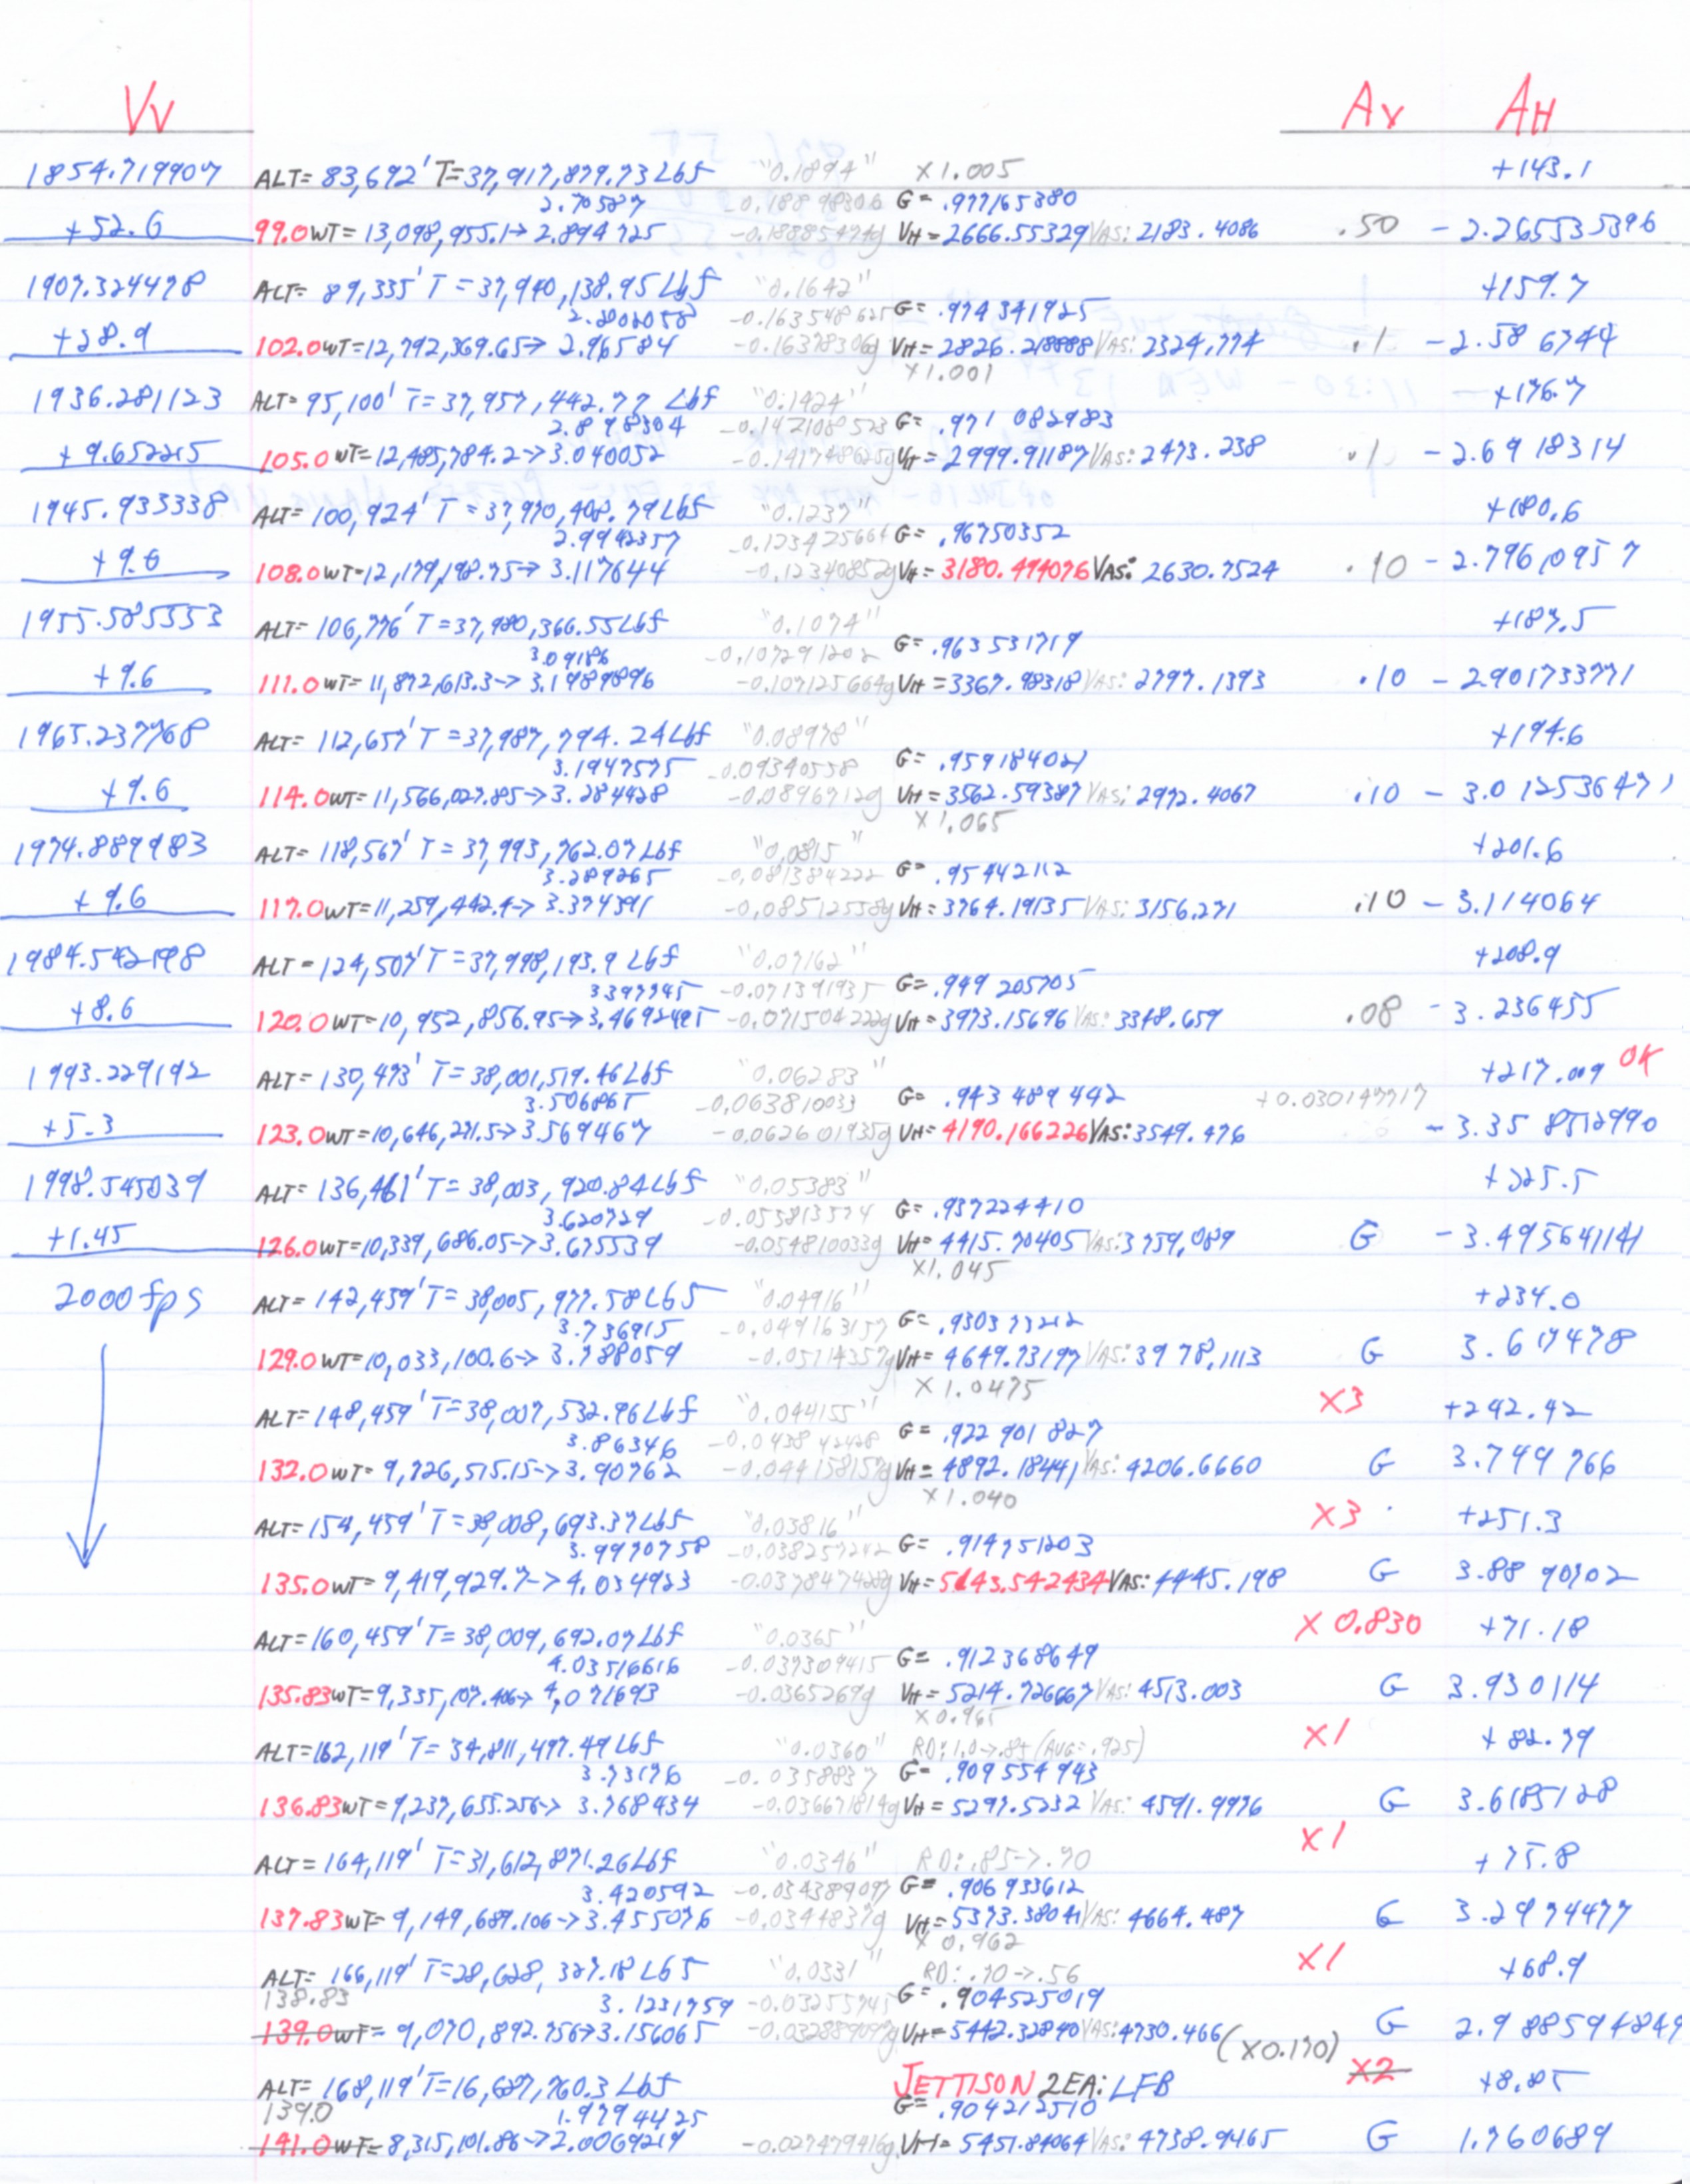 Vv Av AH
1854.719907 ALT= 83,692' T=37,917,879.73 Lbf "0.1894" X1.005 +143.1
2.70587 -0.18898306 G= .977165380
+52.6 99.0 WT= 13,098,955.1→2.894725 -0.18885474g VH=2666.55329 VAS: 2183.4086 .50 -2.265535396
1907.324478 ALT= 89,335' T=37,940,138.95 Lbf "0.1642" +159.7
2.802058 -0.163548625 G= .974341925
+28.9 102.0 WT=12,792,369.65→2.96584 -0.16378306g VH=2826.218888 VAS: 2324.774 .1 -2.586744
X1.001
1936.281123 ALT= 95,100' T=37,957,442.77 Lbf "0.1424" +176.7
2.898304 -0.142108523 G= .971082983
+9.652215 105.0 WT=12,485,784.2→3.040052 -0.141748625g VH=2999.91187 VAS: 2473.238 .1 -2.6918314
1945.933338 ALT= 100,924' T=37,970,408.79 Lbf "0.1237" +180.6
2.9942357 -0.123425664 G= .96750352
+9.6 108.0 WT=12,179,198.75→3.117644 -0.12340852g VH=3180.494076 VAS: 2630.7524 .10 -2.79610957
1955.585553 ALT= 106,776' T=37,980,366.55 Lbf "0.1074" +187.5
3.09186 -0.107291202 G= .963531719
+9.6 111.0 WT=11,872,613.3→3.1989896 -0.107125664g VH=3367.98318 VAS: 2797.1393 .10 -2.901733771
1965.237768 ALT= 112,657' T=37,987,794.24 Lbf "0.08978" +194.6
3.1947575 -0.09340558 G= .959184021
+9.6 114.0 WT=11,566,027.85→3.284428 -0.0896712g VH=3562.59387 VAS: 2972.4067 .10 -3.012536471
X1.065
1974.889983 ALT= 118,567' T=37,993,762.07 Lbf "0.0815" +201.6
3.289265 -0.081384222 G= .95442112
+9.6 117.0 WT=11,259,442.4→3.374391 -0.08512558g VH=3764.19135 VAS: 3156.271 .10 -3.114064
1984.542198 ALT= 124,507' T=37,998,193.9 Lbf "0.07162" +208.9
3.397745 -0.071391935 G= .949205705
+8.6 120.0 WT=10,952,856.95→3.4692495 -0.071504222g VH=3973.15696 VAS: 3348.659 .08 -3.236455
1993.229192 ALT= 130,473' T=38,001,519.46 Lbf "0.06283" +217.009 OK
3.506865 -0.063810033 G= .943489442 +0.030147717
+5.3 123.0 WT=10,646,271.5→3.569467 -0.062601935g VH=4190.166226 VAS: 3549.476 -3.358512990
1998.545039 ALT= 136,461' T=38,003,920.84 Lbf "0.05383" +225.5
3.620729 -0.053813574 G= .937224410
+1.45 126.0 WT=10,339,686.05→3.675539 -0.054810033g VH=4415.70405 VAS: 3759.089 G -3.495641141
X1.045
2000 fps ALT= 142,459' T=38,005,977.58 Lbf "0.04916" +234.0
3.736915 -0.049163157 G= .930373212
129.0 WT=10,033,100.6→3.788059 -0.05114357g VH=4649.73197 VAS: 3978.1113 G 3.617478
X1.0475 X3
ALT= 148,459' T=38,007,532.96 Lbf "0.044155" +242.42
3.86346 -0.043842428 G= .922901827
132.0 WT=9,726,515.15→3.90762 -0.044158157g VH=4892.18441 VAS: 4206.6660 G 3.749766
X1.040 X3
ALT= 154,459' T=38,008,693.37 Lbf "0.03816" +251.3
3.9970758 -0.038257242 G= .914751203
135.0 WT=9,419,929.7→4.034923 -0.037847428g VH=5143.542434 VAS: 4445.198 G 3.8890902
X0.830
ALT= 160,459' T=38,009,692.07 Lbf "0.0365" +71.18
4.03516616 -0.037309415 G= .912368649
135.83 WT=9,335,107.406→4.071693 -0.0365269g VH=5214.726667 VAS: 4513.003 G 3.930114
X0.965 X1
ALT=162,119' T=34,811,497.49 Lbf "0.0360" RD: 1.0→.85 (AVG= .925) +82.79
3.73176 -0.0358837 G= .909554943
136.83 WT=9,237,655.256→3.768434 -0.036671814g VH=5297.5232 VAS: 4591.9976 G 3.6185128
X1
ALT= 164,119' T=31,612,871.26 Lbf "0.0346" RD: .85→.70 +75.8
3.420592 -0.034389097 G= .906933612
137.83 WT=9,149,689.106→3.455076 -0.0344837g VH=5373.38041 VAS: 4664.487 G 3.2974477
X0.962 X1
ALT= 166,119' T=28,628,327.18 Lbf "0.0331" RD: .70→.56 +68.9
138.83 3.1231759 -0.03255745 G= .904525019
139.0 WT=9,070,892.756→3.156065 -0.032889097g VH=5442.32840 VAS: 4730.466 G 2.988594849
(X0.170) X2
ALT= 168,119' T=16,687,760.3 Lbf JETTISON 2EA: LFB +8.85
139.0 1.9794425 G= .904212510
141.0 WT=8,315,101.86→2.0069219 -0.027479416g VH=5451.84064 VAS: 4738.9465 G 1.760689